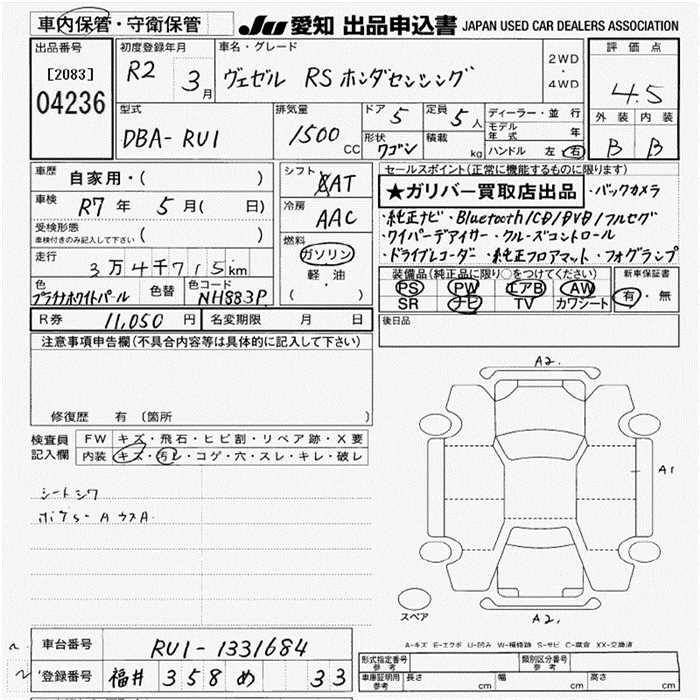 車内保管・守衛保管 JU 愛知 出品申込書 JAPAN USED CAR DEALERS ASSOCIATION
出品番号
[2083]
04236
初度登録年月
R2 3月
車名・グレード
ヴェゼル RS ホンダセンシング
2WD
・
4WD
評価点
4.5
外装 内装
B B
型式
DBA-RU1
排気量
1500cc
ドア 5
定員 5人
形状 ワゴン
積載 kg
ディーラー・並行
モデル年式 年
ハンドル 左・右
車歴 自家用・( )
車検 R7年 5月( 日)
受検形態
車検付きのみ記入して下さい ( )
走行 3万4千715km
色 プラチナホワイトパール
色替
色コード NH883P
シフト AT
冷房 AAC
燃料
ガソリン
軽油
( )
セールスポイント(正常に機能するものに限ります)
★ガリバー買取店出品 ・バックカメラ
・純正ナビ・Bluetooth/CD/DVD/フルセグ
・ワイパーデアイサー・クルーズコントロール
・ドライブレコーダー・純正フロアマット・フォグランプ
装備品(純正品に限り○をつけてください)
PS PW エアB AW
SR ナビ TV カワシート
新車保証書
有・無
R券 11,050円
名変期限 月 日
後日品
注意事項申告欄(不具合内容等は具体的に記入して下さい)
修復歴 有 (箇所 )
検査員記入欄
FW キズ・飛石・ヒビ割・リペア跡・X要
内装 キズ・汚レ・コゲ・穴・スレ・キレ・破レ
シートシワ
A2.
A1
スペア
A2.
A-キズ E-エクボ U-凹み W-補修跡 S-サビ C-腐食 XX-交換済
車台番号 RU1-1331684
登録番号 福井 358 め 33
型式指定番号
参考
類別区分番号
参考
車庫証明用
参考
長さ cm 幅 cm 高さ cm